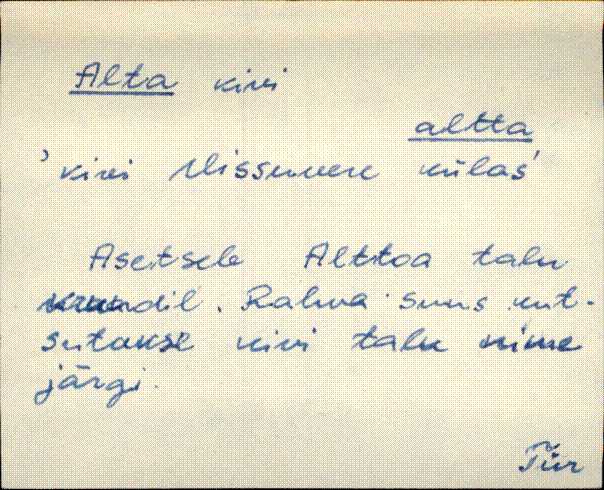 Alta kivi
altta
'kivi Nissuvere külas'
Asetseb Alttoa talu
krundil. Rahva suus kut-
sutakse kivi talu nime
järgi.
Tür